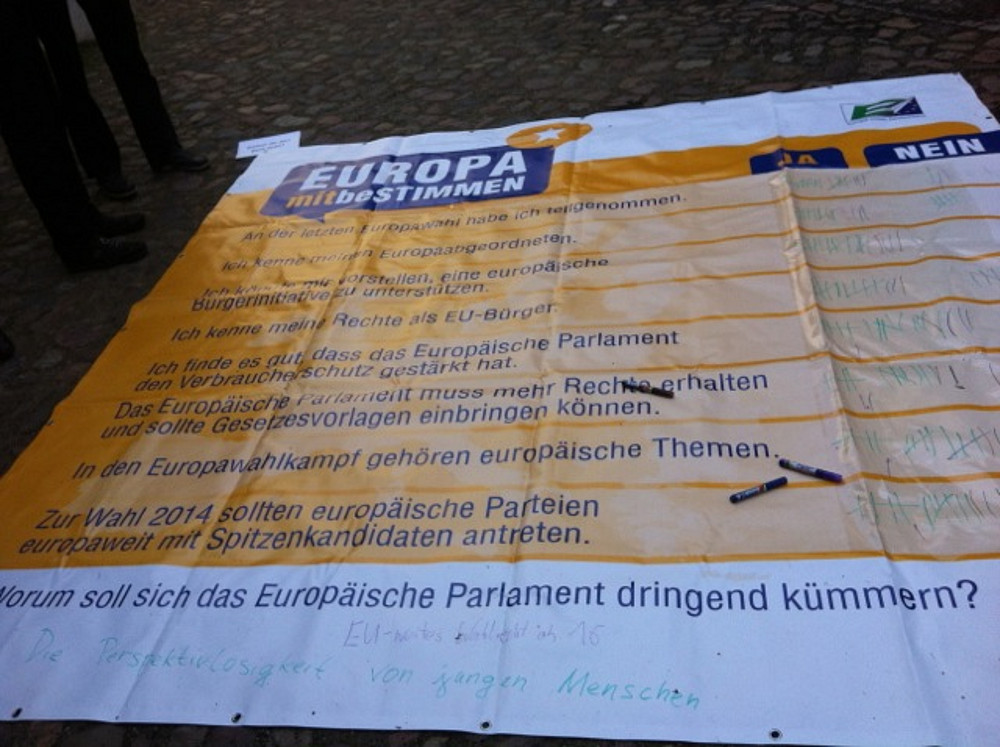 EUROPA
mitbeSTIMMEN
JA
NEIN
An der letzten Europawahl habe ich teilgenommen.
Ich kenne meinen Europaabgeordneten.
Ich könnte mir vorstellen, eine europäische
Bürgerinitiative zu unterstützen.
Ich kenne meine Rechte als EU-Bürger.
Ich finde es gut, dass das Europäische Parlament
den Verbraucherschutz gestärkt hat.
Das Europäische Parlament muss mehr Rechte erhalten
und sollte Gesetzesvorlagen einbringen können.
In den Europawahlkampf gehören europäische Themen.
Zur Wahl 2014 sollten europäische Parteien
europaweit mit Spitzenkandidaten antreten.
Worum soll sich das Europäische Parlament dringend kümmern?
EU-weites Wahlrecht ab 16
Die Perspektivlosigkeit von jungen Menschen